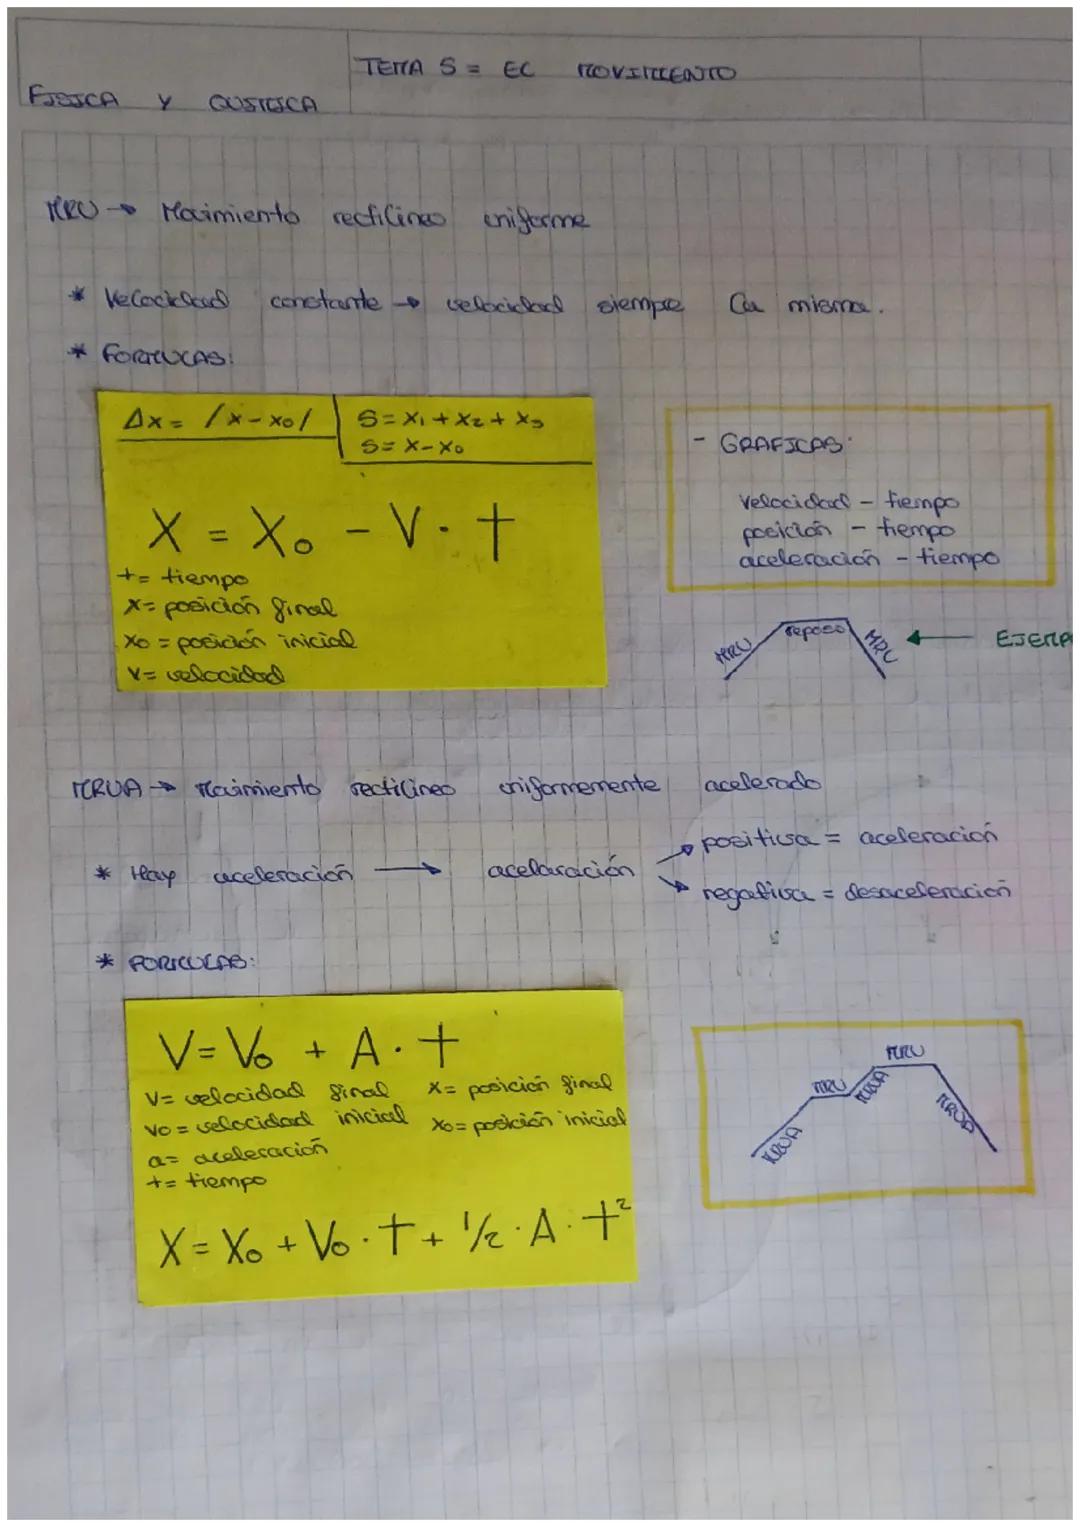 FISICA Y QUIMICA
TEMA 5 = EL MOVIMIENTO
MRU → Movimiento rectilineo uniforme
* Velocidad constante → velocidad siempre la misma.
* FORMULAS:
Δx = /x-x₀/
S = x₁ + x₂ + x₃
S = x - x₀
X = X₀ - V · t
t = tiempo
x = posición final
x₀ = posición inicial
v = velocidad
- GRAFICAS:
velocidad - tiempo
posición - tiempo
aceleración - tiempo
MRU reposo MRU ← EJEMP
MRUA → Movimiento rectilineo uniformemente acelerado
* Hay aceleración → acelaración
positiva = aceleración
negativa = desaceleración
* FORMULAS:
V = V₀ + A · t
v = velocidad final
v₀ = velocidad inicial
a = aceleración
t = tiempo
x = posición final
x₀ = posición inicial
X = X₀ + V₀ · t + 1/2 · A · t²
MRUA MRU MRUA MRU MRUA